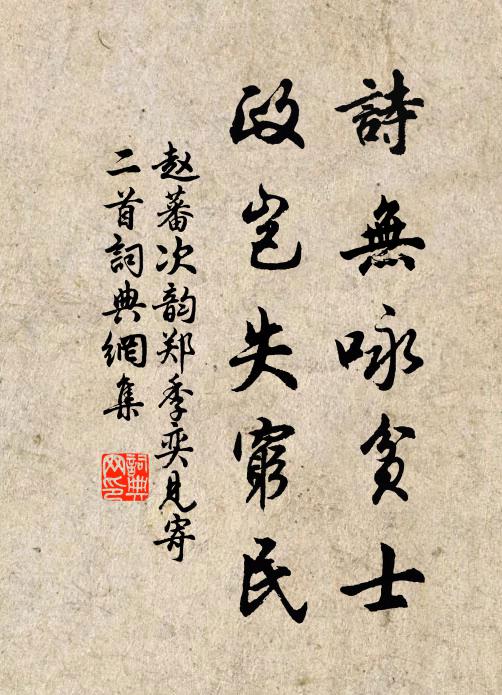 詩無咏貧士
政岂失窮民
赵蕃次韵郑季奕見寄
二首詞典網集
詞典網印